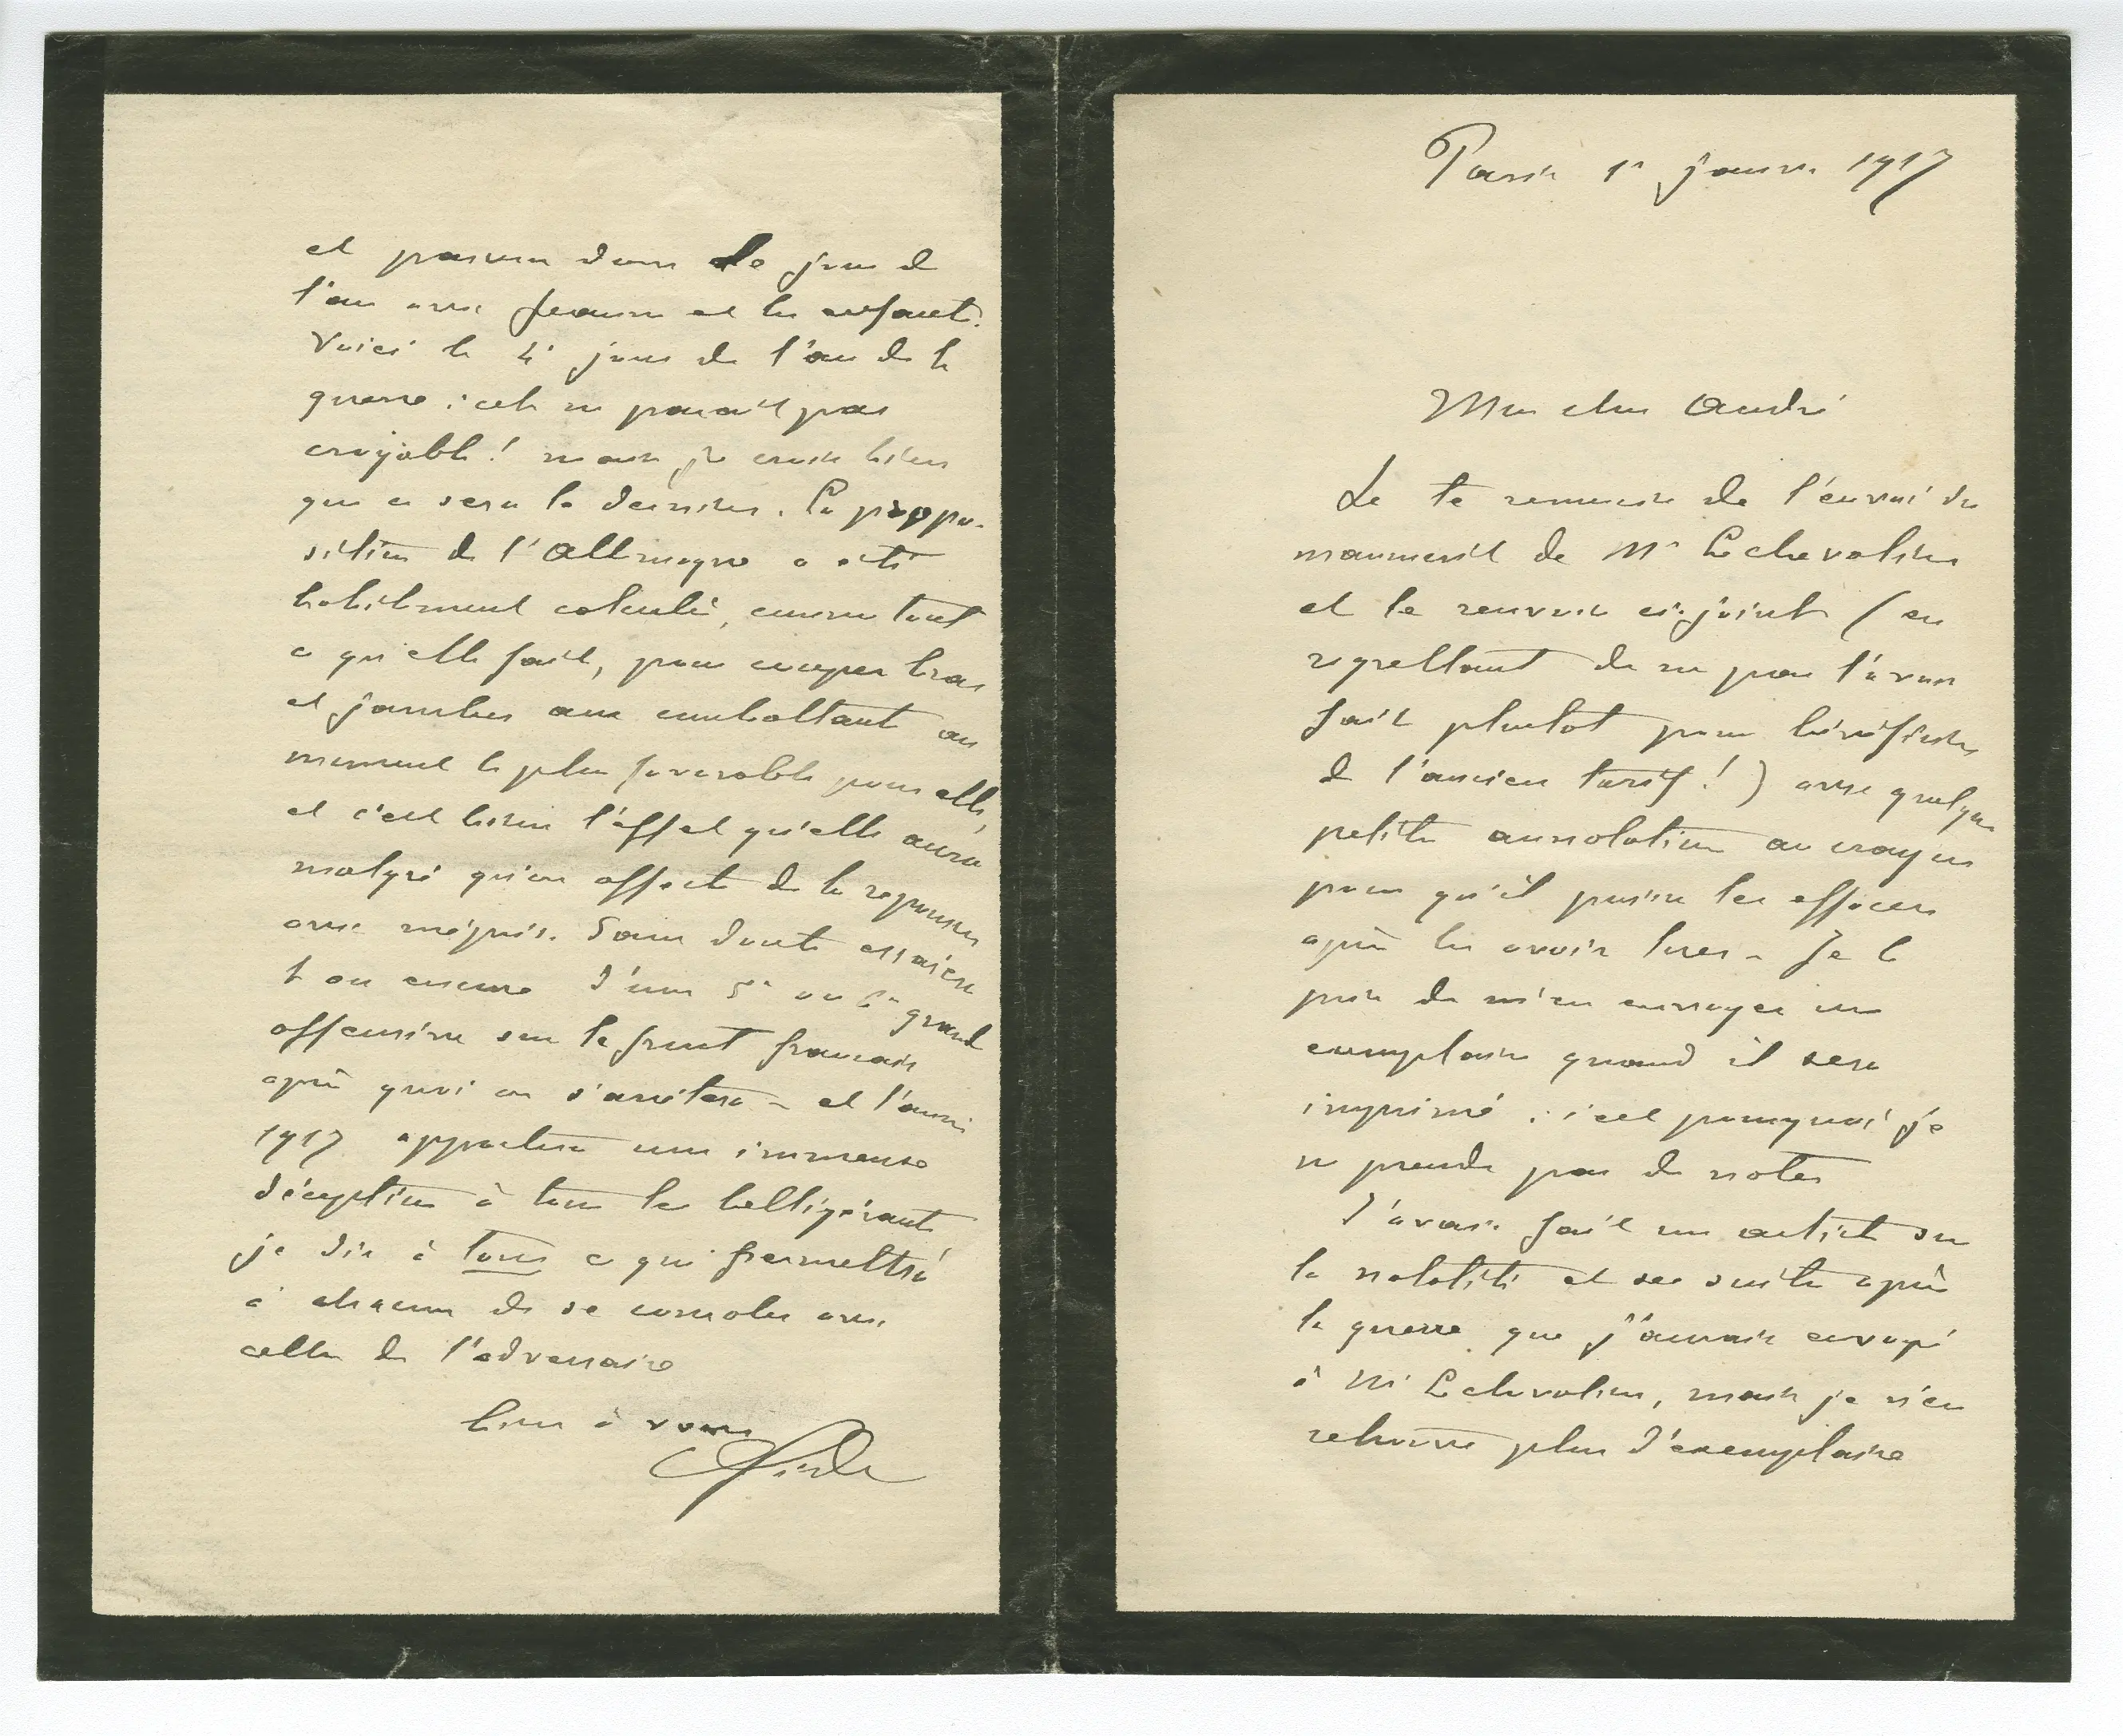 Paris 1r janvr. 1917
Mon cher André
Je te remercie de l'envoi du
manuscrit de Mr Lechevalier
et le renvoie ci-joint (en
regrettant de ne pas l'avoir
fait plutot pour bénéficier
de l'ancien tarif!) avec quelques
petites annotations au crayon
pour qu'il puisse les effacer
après les avoir lues - Je le
prie de m'en envoyer un
exemplaire quand il sera
imprimé : c'est pourquoi je
ne prends pas de notes
J'avais fait un article sur
la natalité et ses suites après
la guerre que j'aurais envoyé
à Mr Lechevalier, mais je n'en
retrouve plus d'exemplaire
et dans le jour de
l'an avec Jeanne et les enfants.
Voici le 4e jour de l'an de la
guerre : cela ne parait pas
croyable! mais je crois bien
que ce sera le dernier. La propo-
sition de l'Allemagne a été
habilement calculée, comme tout
ce qu'elle fait, pour couper bras
et jambes aux combattants au
moment le plus favorable pour elle,
et c'est bien l'effet qu'elle aura
malgré qu'on affecte de la repousser
avec mépris. Sans doute essaiera
t on encore d'une 5e ou 6e grande
offensive sur le front français
après quoi on s'arrêtera - et l'année
1917 apportera une immense
déception à tous les belligérants
je dis à tous ce qui permettra
à chacun de se consoler avec
celle de l'adversaire
bien à vous
Gide